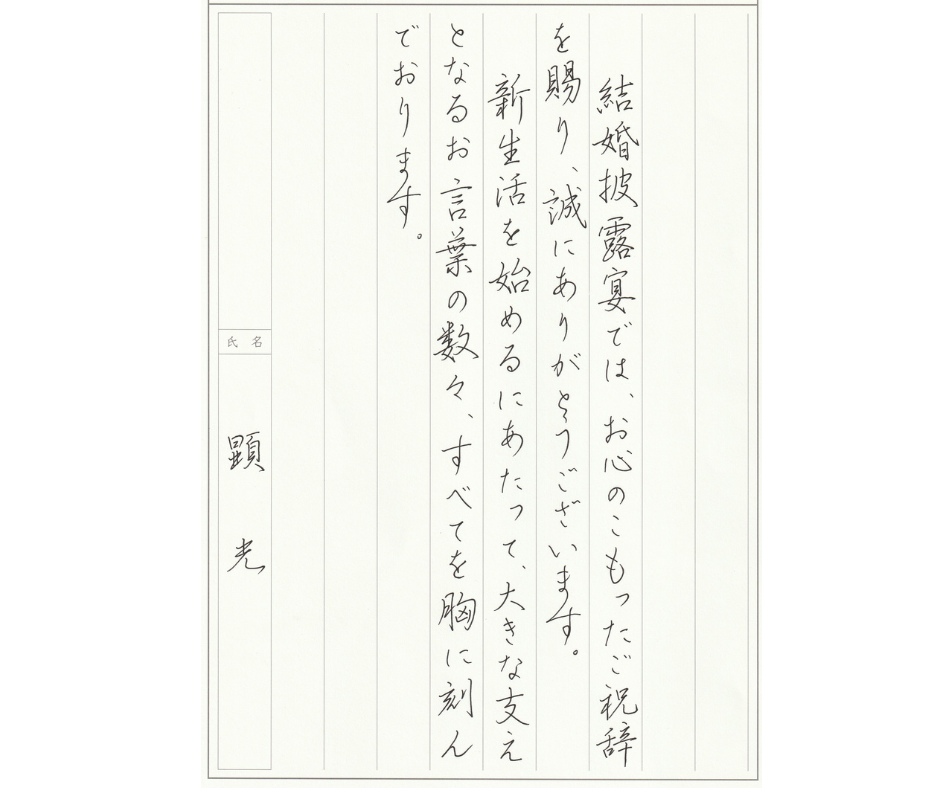 結婚披露宴では、お心のこもったご祝辞
を賜り、誠にありがとうございます。
新生活を始めるにあたって、大きな支え
となるお言葉の数々、すべてを胸に刻ん
でおります。
氏名
顕光